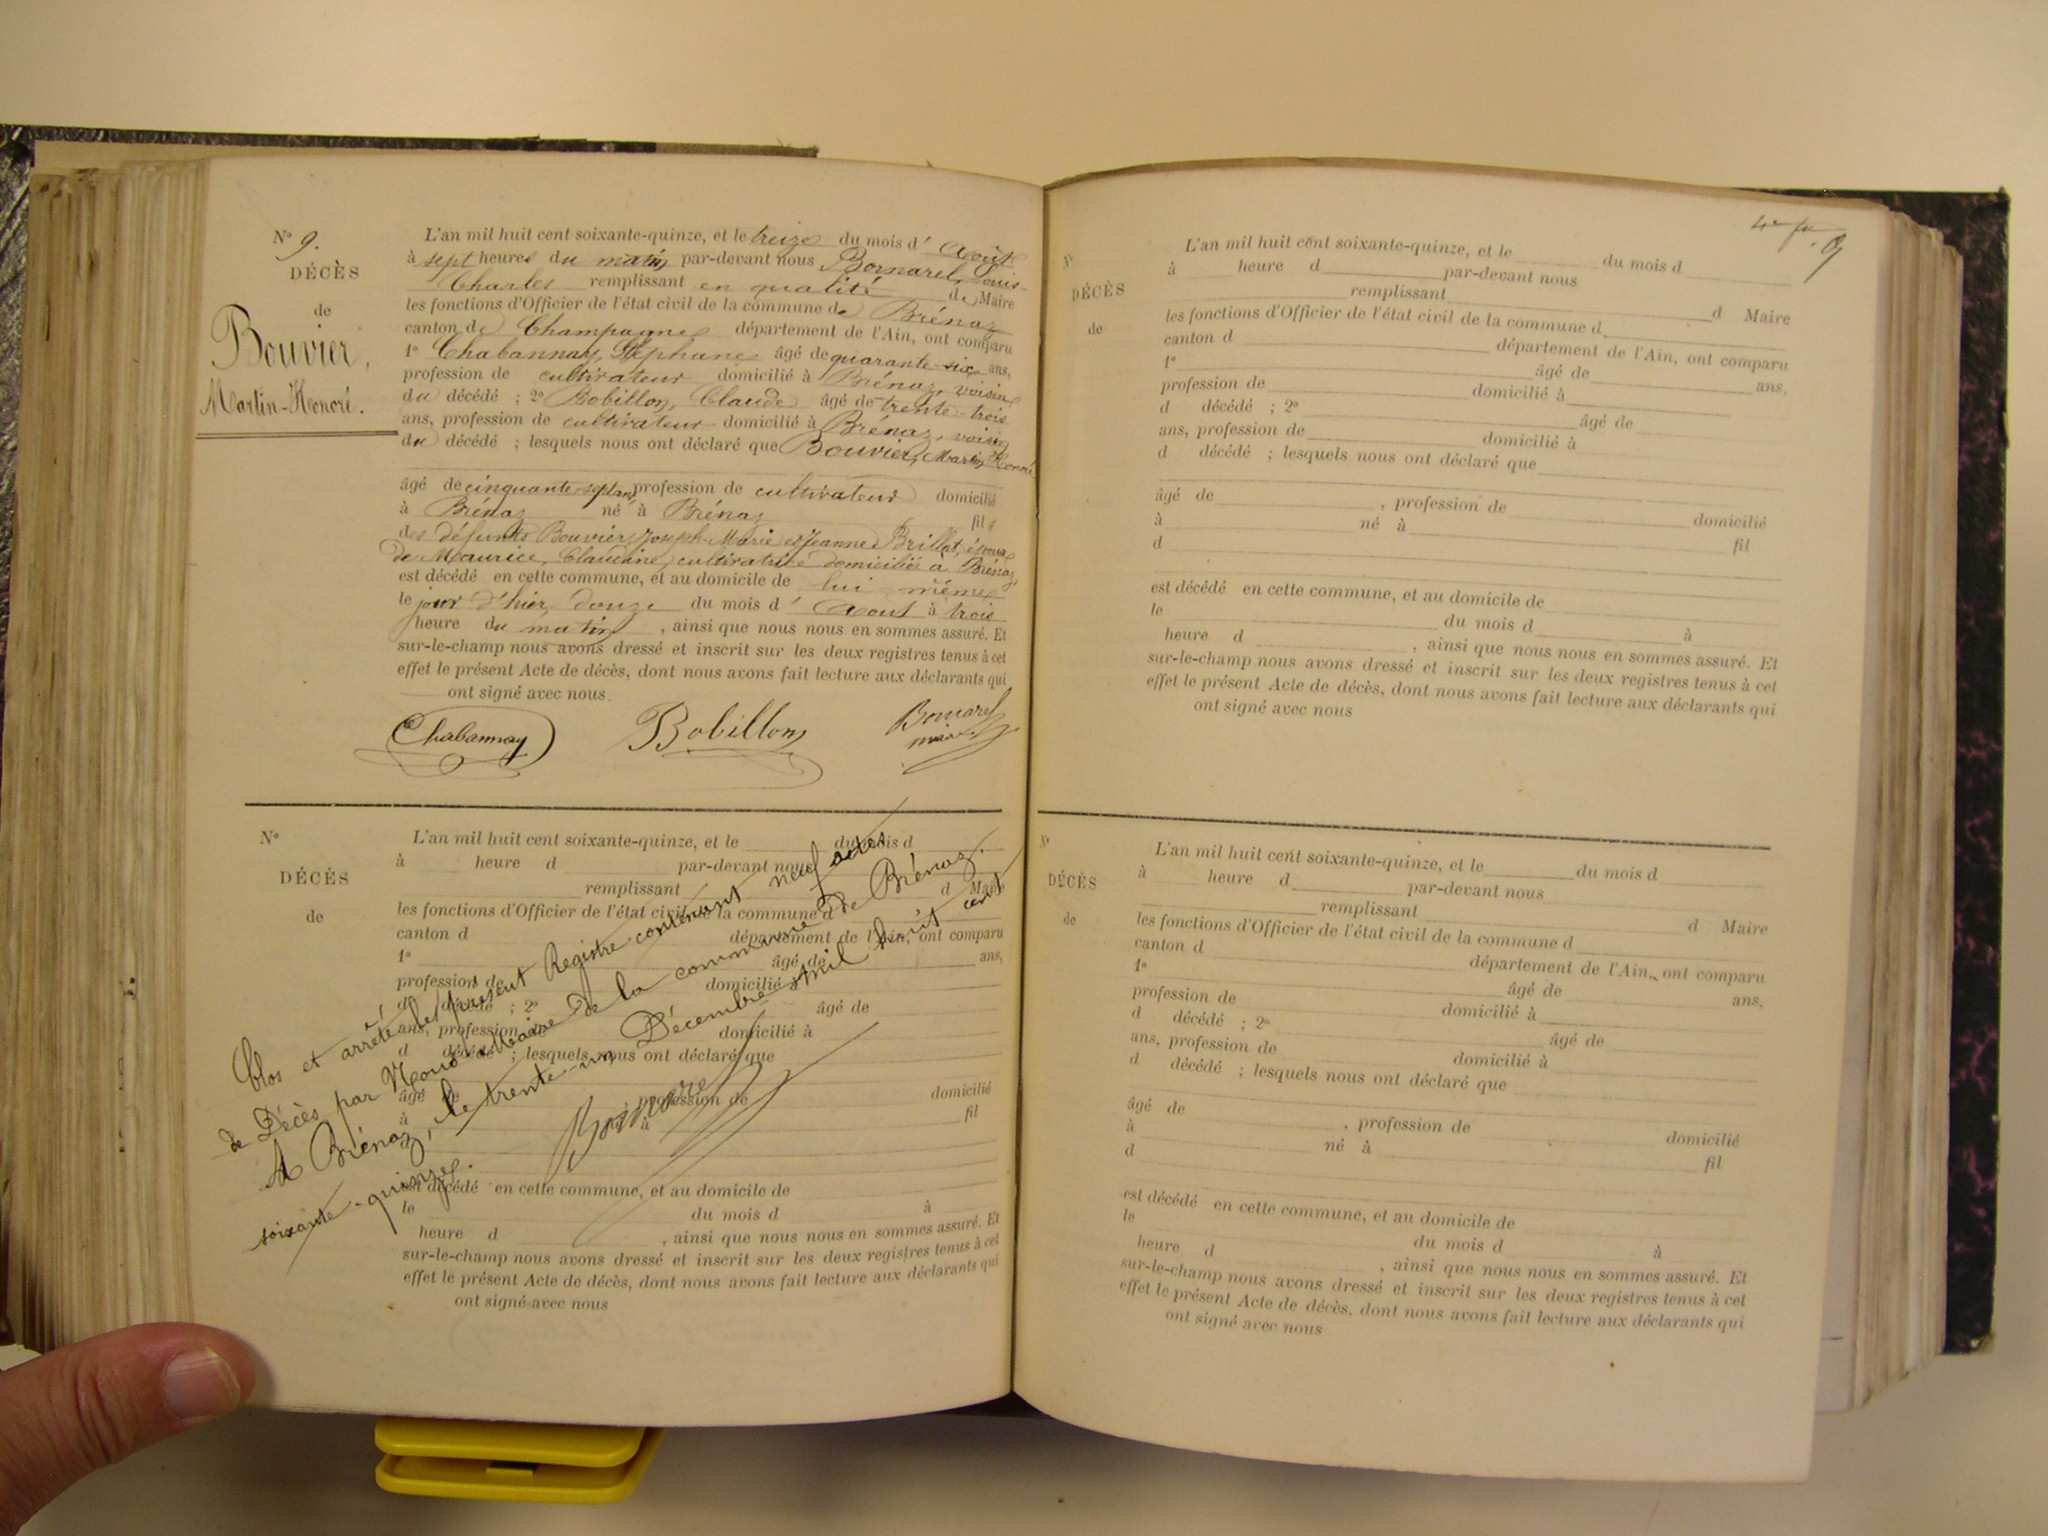 N° 9.
DÉCÈS
de
Bouvier,
Martin-Honoré.
L'an mil huit cent soixante-quinze, et le treize du mois d' Août
à sept heures du matin par-devant nous Bornarel, Louis
Charles remplissant en qualité de Maire
les fonctions d'Officier de l'état civil de la commune de Brénaz
canton de Champagne département de l'Ain, ont comparu
1° Chabannay, Stéphane âgé de quarante-six ans,
profession de cultivateur domicilié à Brénaz, voisin
du décédé ; 2° Bobillon, Claude âgé de trente-trois
ans, profession de cultivateur domicilié à Brénaz, voisin
du décédé ; lesquels nous ont déclaré que Bouvier, Martin Honoré
âgé de cinquante-sept ans, profession de cultivateur domicilié
à Brénaz né à Brénaz fils
des défunts Bouvier, Joseph-Marie et Jeanne Brillat, époux
de Maurice, Claudine, cultivatrice domiciliée à Brénaz,
est décédé en cette commune, et au domicile de lui même
le jour d'hier, douze du mois d' Août à trois
heure du matin , ainsi que nous nous en sommes assuré. Et
sur-le-champ nous avons dressé et inscrit sur les deux registres tenus à cet
effet le présent Acte de décès, dont nous avons fait lecture aux déclarants qui
ont signé avec nous.
Chabannay Bobillon Bornarel
maire
N°
DÉCÈS
de
L'an mil huit cent soixante-quinze, et le du mois d
à heure d par-devant nous
remplissant d Maire
les fonctions d'Officier de l'état civil de la commune d
canton d département de l'Ain, ont comparu
1° âgé de ans,
profession de domicilié à
d décédé ; 2° âgé de
ans, profession de domicilié à
d décédé ; lesquels nous ont déclaré que
âgé de , profession de domicilié
à né à fil
d
est décédé en cette commune, et au domicile de
le du mois d à
heure d , ainsi que nous nous en sommes assuré. Et
sur-le-champ nous avons dressé et inscrit sur les deux registres tenus à cet
effet le présent Acte de décès, dont nous avons fait lecture aux déclarants qui
ont signé avec nous
Clos et arrêté le présent Registre contenant neuf actes
de Décès par Nous Maire de la commune de Brénaz.
A Brénaz, le trente-un Décembre mil huit cent
soixante-quinze.
Bornarel
4e fe.
N°
DÉCÈS
de
L'an mil huit cent soixante-quinze, et le du mois d
à heure d par-devant nous
remplissant d Maire
les fonctions d'Officier de l'état civil de la commune d
canton d département de l'Ain, ont comparu
1° âgé de ans,
profession de domicilié à
d décédé ; 2° âgé de
ans, profession de domicilié à
d décédé ; lesquels nous ont déclaré que
âgé de , profession de domicilié
à né à fil
d
est décédé en cette commune, et au domicile de
le du mois d à
heure d , ainsi que nous nous en sommes assuré. Et
sur-le-champ nous avons dressé et inscrit sur les deux registres tenus à cet
effet le présent Acte de décès, dont nous avons fait lecture aux déclarants qui
ont signé avec nous
N°
DÉCÈS
de
L'an mil huit cent soixante-quinze, et le du mois d
à heure d par-devant nous
remplissant d Maire
les fonctions d'Officier de l'état civil de la commune d
canton d département de l'Ain, ont comparu
1° âgé de ans,
profession de domicilié à
d décédé ; 2° âgé de
ans, profession de domicilié à
d décédé ; lesquels nous ont déclaré que
âgé de , profession de domicilié
à né à fil
d
est décédé en cette commune, et au domicile de
le du mois d à
heure d , ainsi que nous nous en sommes assuré. Et
sur-le-champ nous avons dressé et inscrit sur les deux registres tenus à cet
effet le présent Acte de décès, dont nous avons fait lecture aux déclarants qui
ont signé avec nous